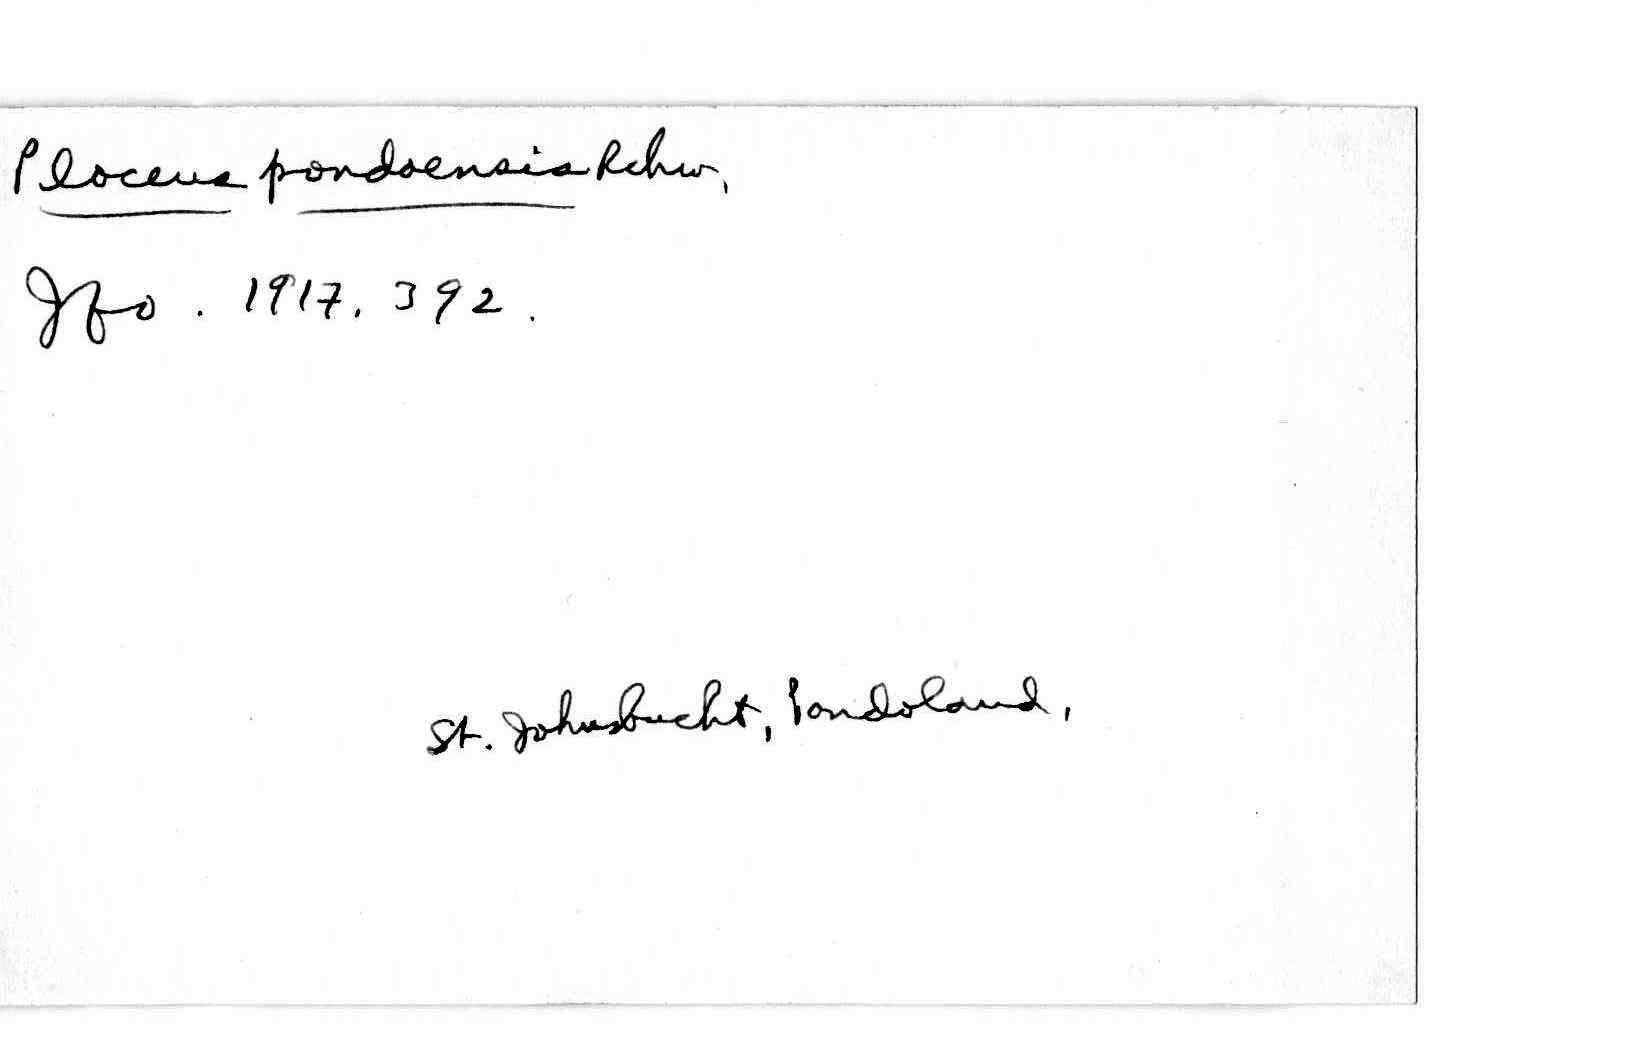 Ploceus pondoensis Rchw,
Jfo. 1917. 392.
St. Johnsbucht, Pondoland,